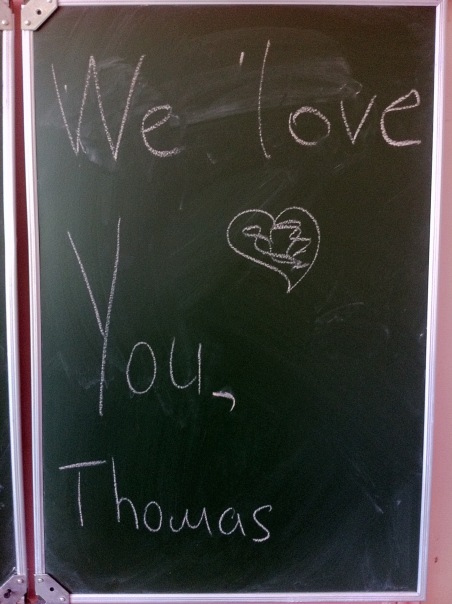 We love
You,
Thomas